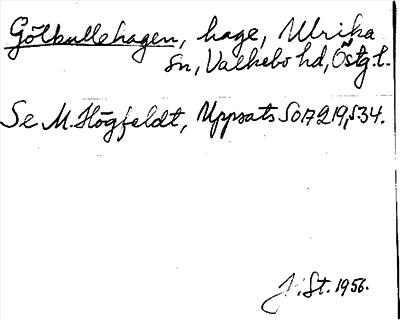 Gölkullehagen, hage, Ulrika
Sn, Valkebo hd, Östg l.
Se M. Högfeldt, Uppsats SOA 219, S 34.
J. St. 1956.